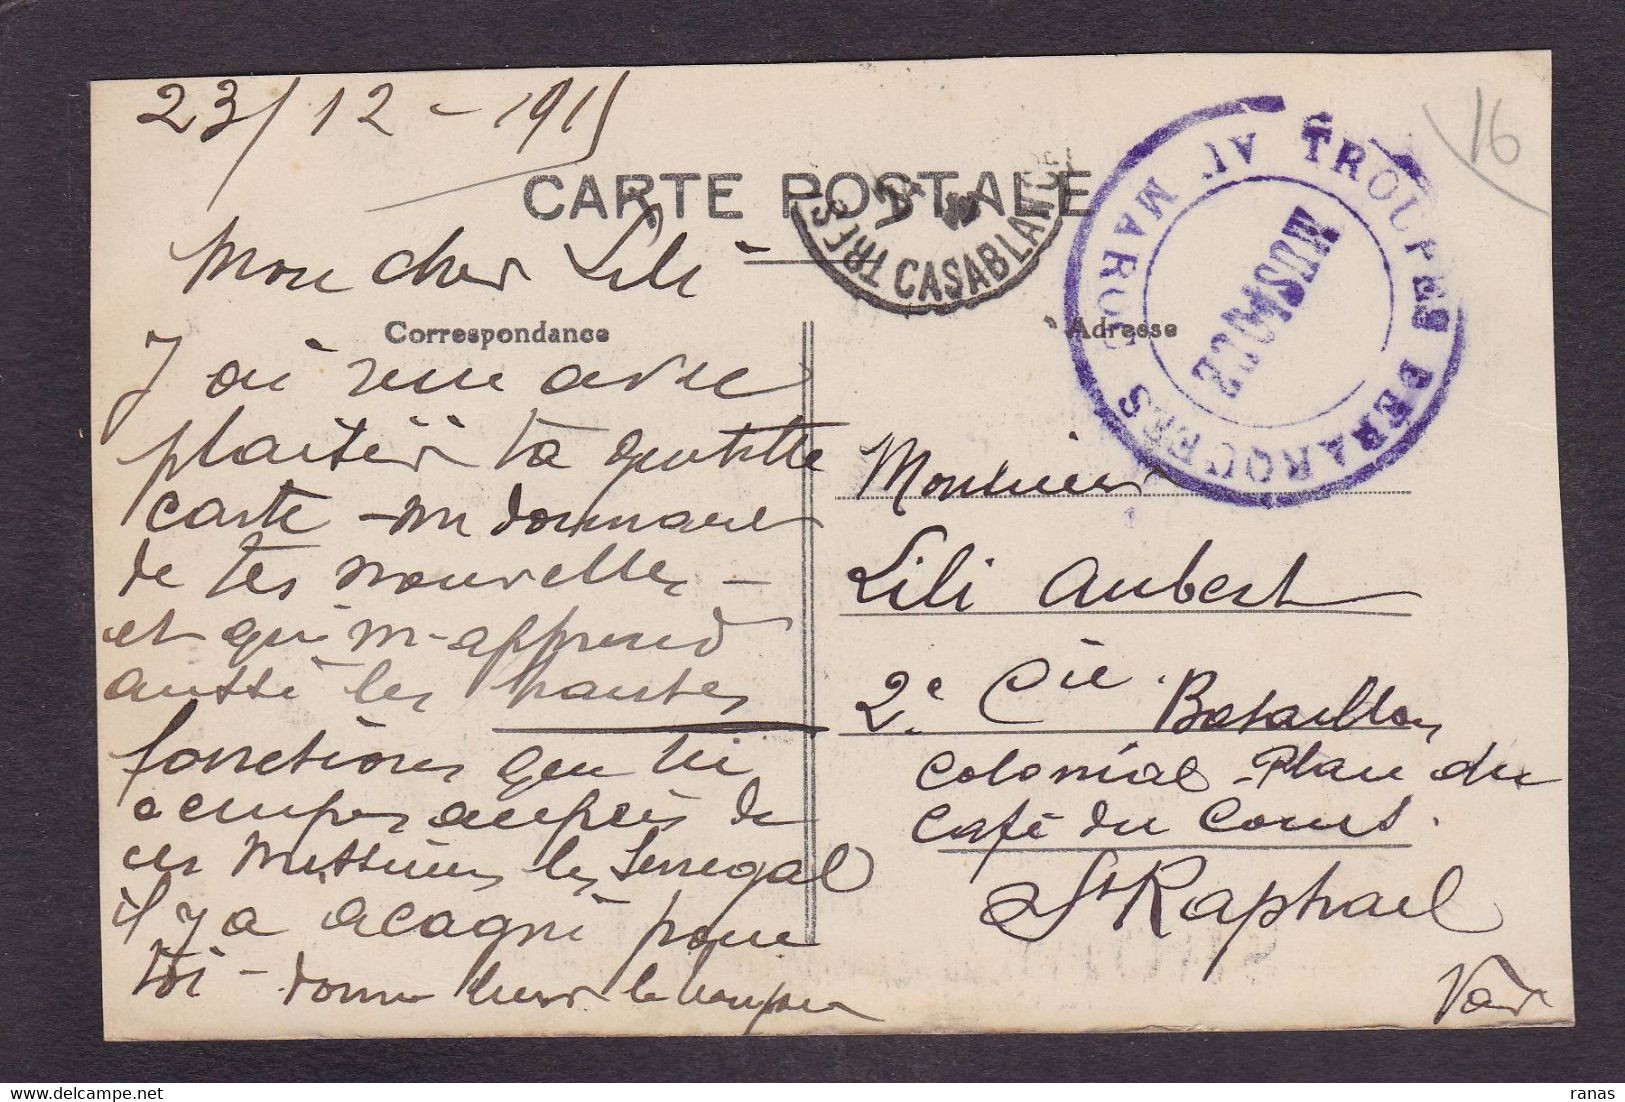 23/12-1915
16
CARTE POSTALE
TRÉS ET POSTES CASABLANCA
TROUPES DÉBARQUÉES AU MAROC
Mon cher Lili
Correspondance
J'ai reçu avec
plaisir ta gentille
carte - m donnant
de tes nouvelles -
et qui m'apprend
aussi les hautes
fonctions que tu
occupes auprès de
ces Messieurs les Senegal
il y a acagni pour
toi - donne leur le bonjour
Adresse
Monsieur
Lili Aubert
2e Cie Bataillon
Colonial Place du
Café du Cours.
à St Raphael
Var
ranas